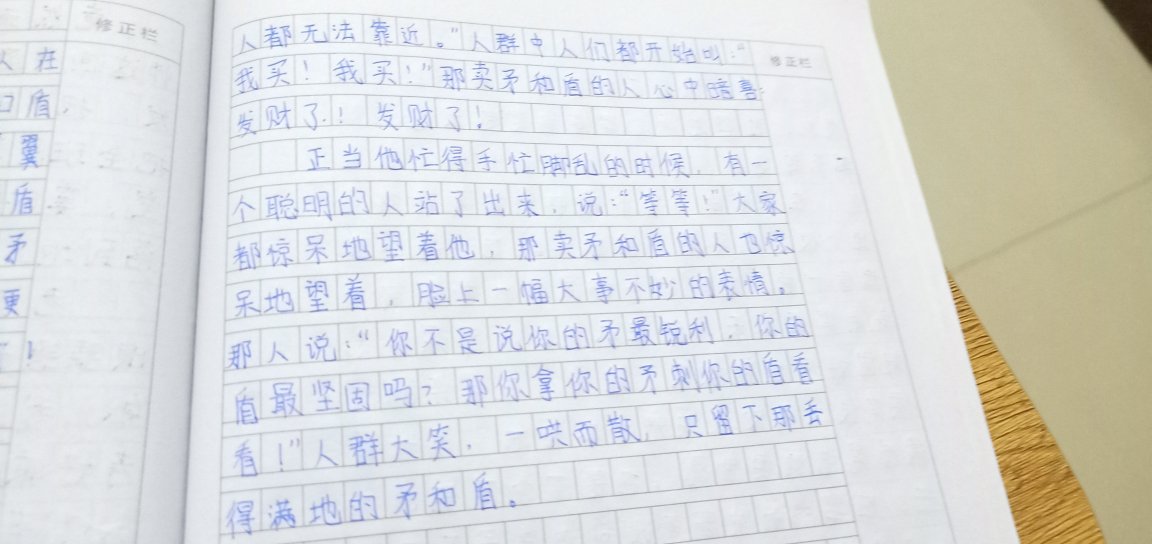 修正栏
人在
盾
翼
盾
矛
更
修正栏
人都无法靠近。”人群中人们都开始叫:“
我买!我买!”那卖矛和盾的人心中暗喜:
发财了!发财了!
正当他忙得手忙脚乱的时候,有一
个聪明的人站了出来,说:“等等!”大家
都惊呆地望着他,那卖矛和盾的人也惊
呆地望着,脸上一幅大事不妙的表情。
那人说:“你不是说你的矛最锐利,你的
盾最坚固吗?那你拿你的矛刺你的盾看
看!”人群大笑,一哄而散,只留下那丢
得满地的矛和盾。